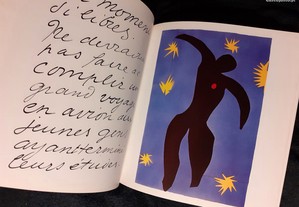 momen
si libres.
Ne devrai
pas faire a
complir un
grand voya
en avion au
jeunes gens
ayant termin
leurs étu